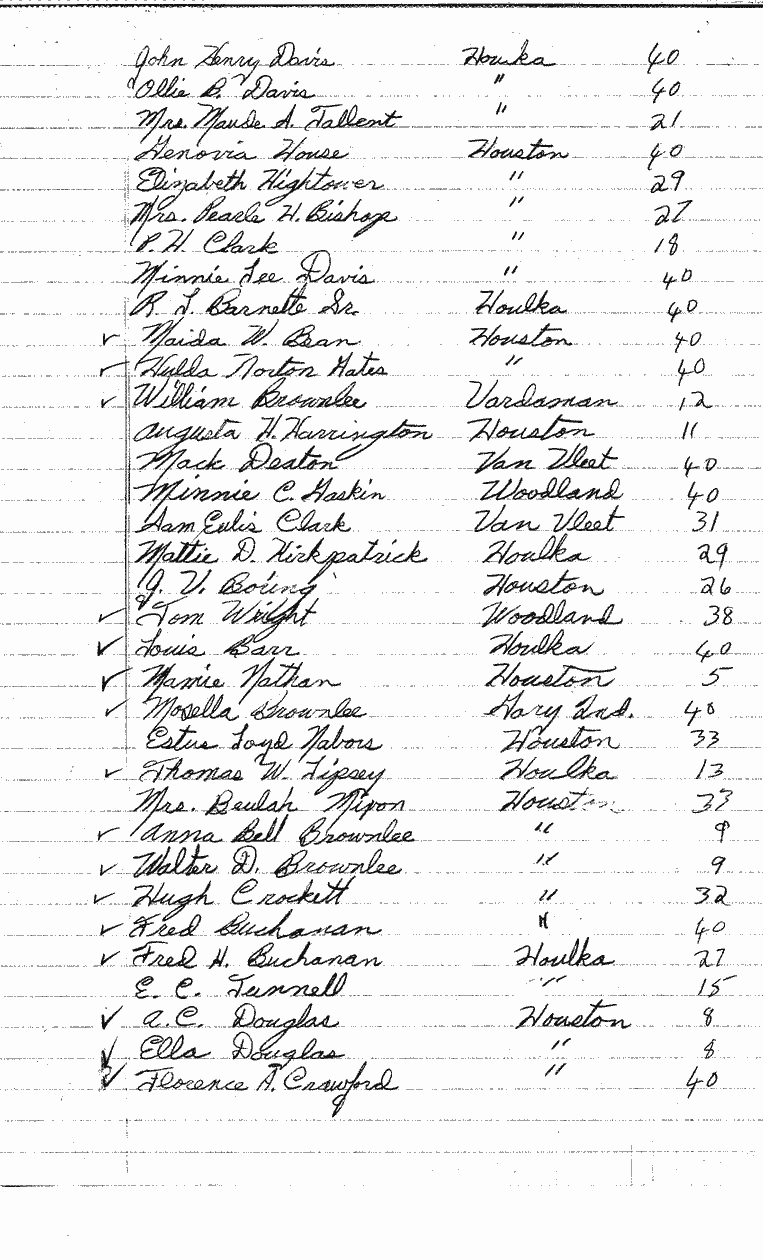 John Henry Davis Houlka 40
Ollie B. Davis " 40
Mrs. Maude A. Tallent " 21
Genovia House Houston 40
Elizabeth Hightower " 29
Mrs. Pearle H. Bishop " 27
P. H. Clark " 18
Minnie Lee Davis " 40
R. L. Barnette Sr. Houlka 40
✓ Maida W. Bean Houston 40
✓ Hulda Norton Gates " 40
✓ William Brownlee Vardaman 12
Augusta H. Harrington Houston 11
Mack Deaton Van Vleet 40
Minnie C. Gaskin Woodland 40
Sam Eulis Clark Van Vleet 31
Mattie D. Kirkpatrick Houlka 29
J. V. Houston 26
✓ Tom Wright Woodland 38
✓ Louis Barr Houlka 40
✓ Mamie Nathan Houston 5
✓ Mosella Brownlee Gary Ind. 40
Estus Loyd Nabors Houston 33
✓ Thomas W. Tipsey Houlka 13
Mrs. Beulah Mixon Houston 33
✓ Anna Bell Brownlee " 9
✓ Walter D. Brownlee " 9
✓ Hugh Crockett " 32
✓ Fred Buchanan " 40
✓ Fred H. Buchanan Houlka 27
E. C. Tunnell " 15
✓ A.C. Douglas Houston 8
✓ Ella Douglas " 8
✓ Florence A. Crawford " 40